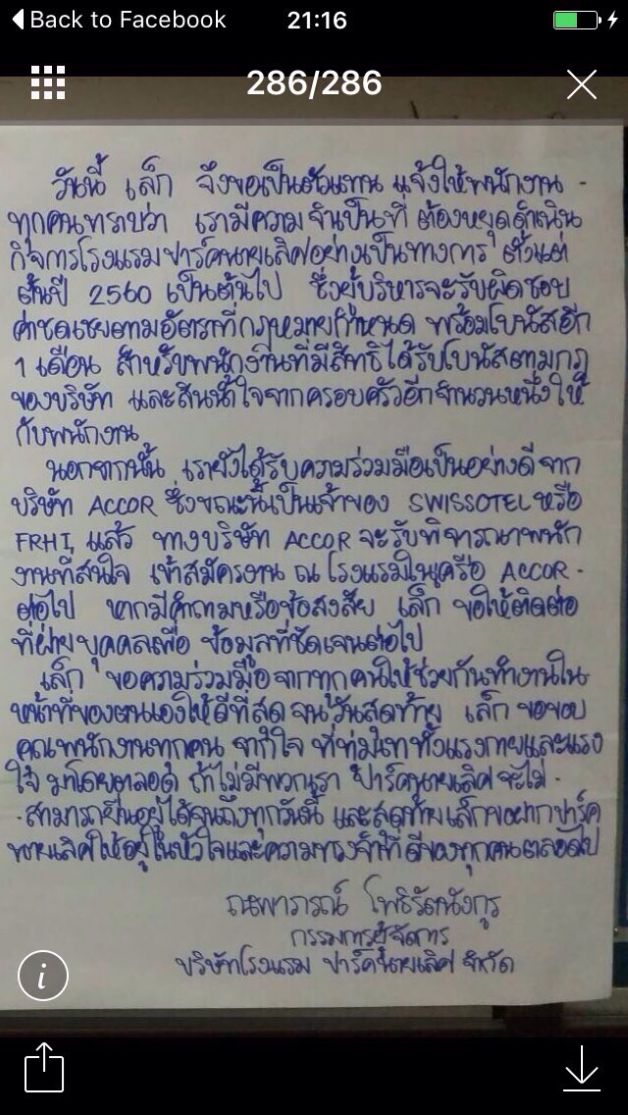 Back to Facebook
21:16
286/286
วันนี้ เล็ก จึงขอเป็นตัวแทน แจ้งให้พนักงาน -
ทุกคนทราบว่า เรามีความจำเป็นที่ ต้องหยุดดำเนิน
กิจการโรงแรมปาร์คนายเลิศอย่างเป็นทางการ ตั้งแต่
ต้นปี 2560 เป็นต้นไป ซึ่งผู้บริหารจะรับผิดชอบ
ค่าชดเชยตามอัตราที่กฎหมายกำหนด พร้อมโบนัสอีก
1 เดือน สำหรับพนักงานที่มีสิทธิได้รับโบนัสตามกฎ
ของบริษัท และสินน้ำใจจากครอบครัวอีกจำนวนหนึ่งให้
กับพนักงาน
นอกจากนั้น เรายังได้รับความร่วมมือเป็นอย่างดีจาก
บริษัท ACCOR ซึ่งขณะนี้เป็นเจ้าของ SWISSOTEL หรือ
FRHI แล้ว ทางบริษัท ACCOR จะรับพิจารณาพนัก
งานที่สนใจ เข้าสมัครงาน ณ โรงแรมในเครือ ACCOR -
ต่อไป หากมีคำถามหรือข้อสงสัย เล็ก ขอให้ติดต่อ
ที่ฝ่ายบุคคลเพื่อ ข้อมูลที่ชัดเจนต่อไป
เล็ก ขอความร่วมมือจากทุกคนให้ช่วยกันทำงานใน
หน้าที่ของตนเองให้ดีที่สุด จนวันสุดท้าย เล็ก ขอขอบ
คุณพนักงานทุกคน จากใจ ที่ทุ่มเททั้งแรงกายและแรง
ใจ มาโดยตลอด ถ้าไม่มีพวกเรา ปาร์คนายเลิศ จะไม่ -
- สามารถยืนอยู่ได้จนถึงทุกวันนี้ และสุดท้ายเล็กขอฝากปาร์ค
นายเลิศให้อยู่ในหัวใจและความทรงจำที่ดีของทุกคนตลอดไป
ณพาภรณ์ โพธิรัตนังกูร
กรรมการผู้จัดการ
บริษัทโรงแรม ปาร์คนายเลิศ จำกัด